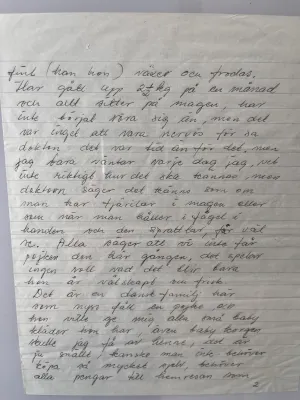 fint (han hon) växer och frodas.
Har gått upp 2½ kg på en månad
och allt sitter på magen, har
inte börjat röra sig än, men det
var inget att vara nervös för sa
doktorn det var tid än för det, men
jag bara väntar varje dag jag, vet
inte riktigt hur det ska kännas, men
doktorn säger det känns som om
man har fjärilar i magen eller
som när man håller i fågel i
handen och den sprattlar, får väl
se. Alla säger att vi inte får
pojken den här gången, det spelar
ingen roll vad det blir bara
hon är välskapt och frisk
Det är en dansk family här
som nyss fått en pojke och
hon ville ge mig alla små baby
kläder hon har, även baby korgen
skulle jag få av henne, det är
ju snällt, kanske man inte behöver
köpa så mycket själv, behöver
alla pengar till hemresan som
2